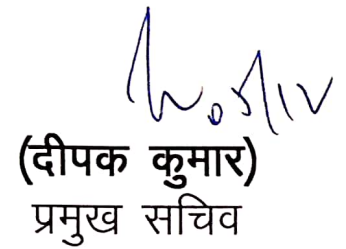 (दीपक कुमार)
प्रमुख सचिव